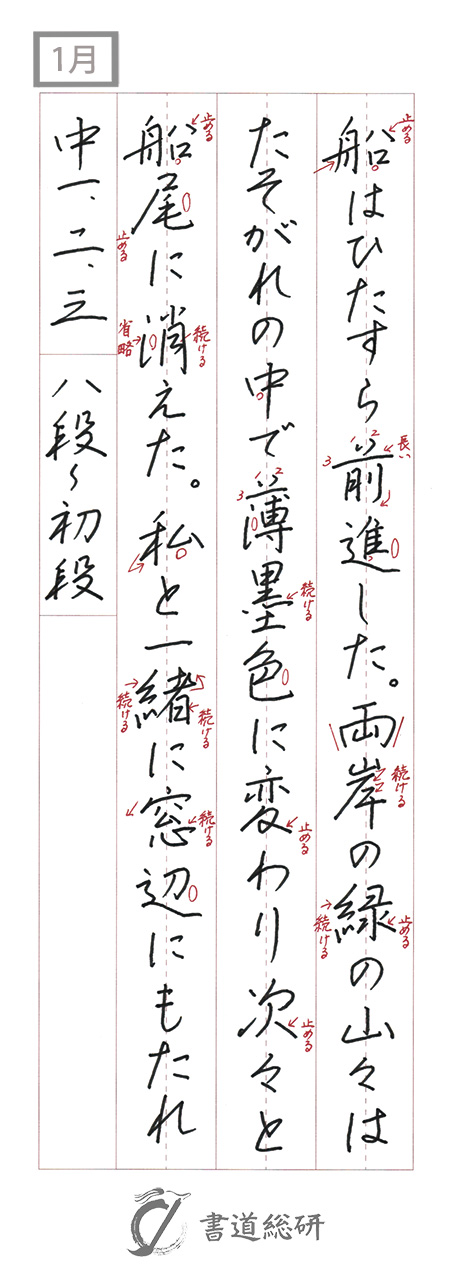 1月
船はひたすら前進した。両岸の緑の山々は
たそがれの中で薄墨色に変わり次々と
船尾に消えた。私と一緒に窓辺にもたれ
中一、二、三
八段～初段
止める
長い
1
2
3
続ける
止める
続ける
1
2
3
続ける
止める
止める
止める
止める
続ける
省略
続ける
続ける
続ける
書道総研